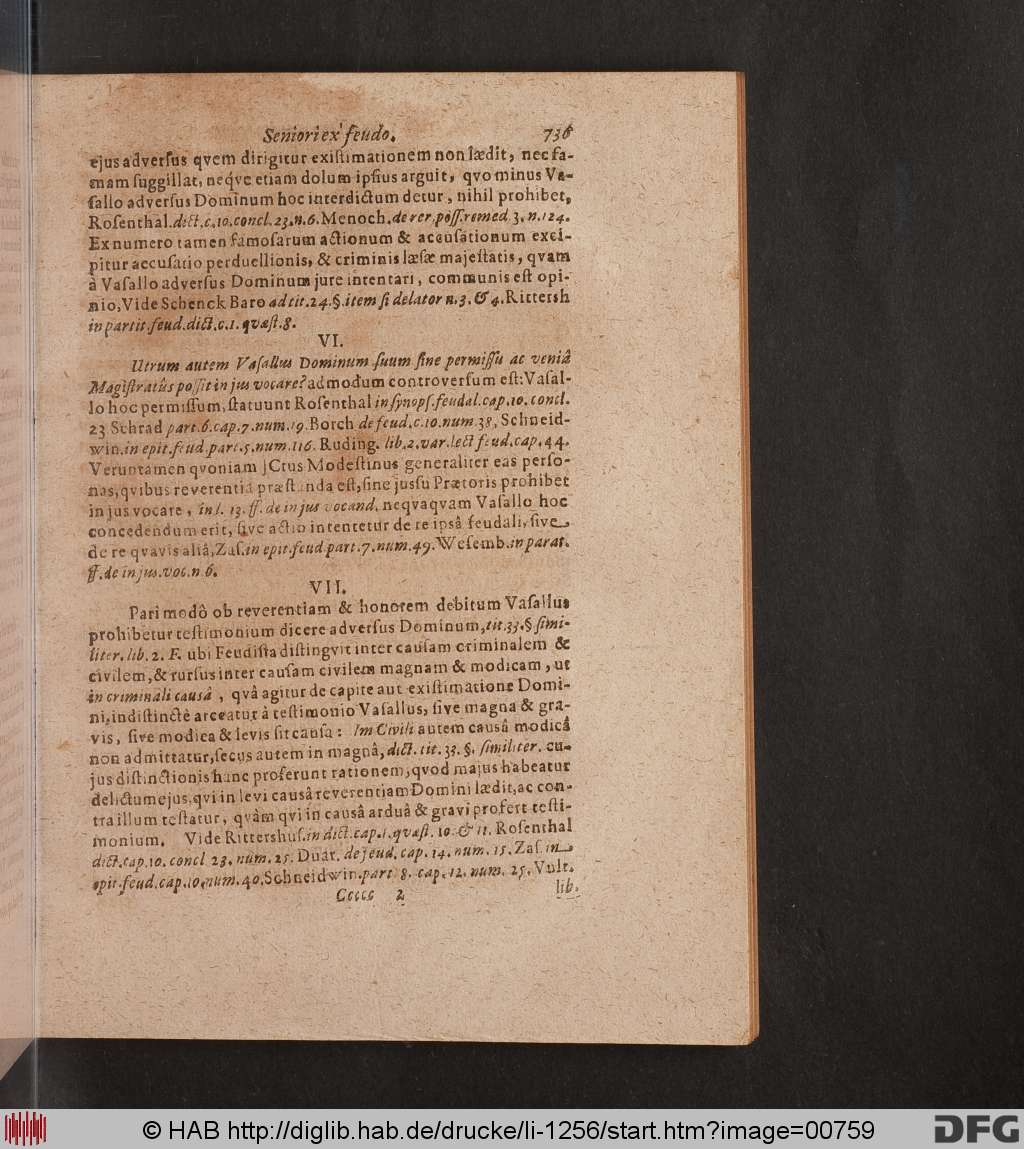 Seniori ex feudo. 736
ejus adverſus qvem dirigitur exiſtimationem non lædit, nec fa-
mam ſuggillat, neqve etiam dolum ipſius arguit, qvo minus Va-
ſallo adverſus Dominum hoc interdictum detur, nihil prohibet,
Roſenthal. dict. c. 10. concl. 23. n. 6. Menoch. de rer. poſſ. remed 3. n. 124.
Ex numero tamen famoſarum actionum & accuſationum exci-
pitur accuſatio perduellionis, & criminis læſæ majeſtatis, qvam
à Vaſallo adverſus Dominum jure intentari, communis eſt opi-
nio, Vide Schenck Baro ad tit. 24. §. item ſi delator n. 3. & 4. Rittersh
in partit. feud. dict. c. 1. quæſt. 8.
VI.
Utrum autem Vaſallus Dominum ſuum ſine permiſſu ac veniâ
Magiſtratûs poſſit in jus vocare? admodum controverſum eſt: Vaſal-
lo hoc permiſſum, ſtatuunt Roſenthal in ſynopſ. feudal. cap. 10. concl.
23 Schrad part. 6. cap. 7. num. 19. Borch de feud. c. 10. num. 38, Schneid-
win. in epit. feud. part. 5. num. 116. Ruding. lib. 2. var. lect feud. cap. 44.
Veruntamen qvoniam jCtus Modeſtinus generaliter eas perſo-
nas, qvibus reverentia præſtanda eſt, ſine juſſu Prætoris prohibet
in jus vocare, in l. 13. ff. de in jus vocand. neqvaqvam Vaſallo hoc
concedendum erit, ſive actio intentetur de re ipsâ feudali, ſive
de re qvavis aliâ, Zaſ. in epit. feud part. 7. num. 49. Weſemb. in parat.
ff. de in jus. voc. n 6.
VII.
Pari modô ob reverentiam & honorem debitum Vaſallus
prohibetur teſtimonium dicere adverſus Dominum, tit. 33. § ſimi-
liter. lib. 2. F. ubi Feudiſta diſtingvit inter cauſam criminalem &
civilem, & rurſus inter cauſam civilem magnam & modicam, ut
in criminali causâ, qvâ agitur de capite aut exiſtimatione Domi-
ni, indiſtinctè arceatur à teſtimonio Vaſallus, ſive magna & gra-
vis, ſive modica & levis ſit cauſa: Im Civili autem causâ modicâ
non admittatur, ſecus autem in magnâ, dict. tit. 33. §. ſimiliter. cu-
jus diſtinctionis hanc proferunt rationem, qvod majus habeatur
delictum ejus, qvi in levi causâ reverentiam Domini lædit, ac con-
tra illum teſtatur, qvàm qvi in causâ arduâ & gravi profert teſti-
monium. Vide Rittershuſ. in dict. cap. 1. quæſt. 10. & 11. Roſenthal
dict. cap. 10. concl 23. num. 25. Duar. de feud. cap. 14. num. 15. Zaſ. in
epit. feud. cap. 10. num. 40. Schneidwin. part 8. cap. 12. num. 25. Vult.
Ccccc 2 lib.
© HAB http://diglib.hab.de/drucke/li-1256/start.htm?image=00759
DFG